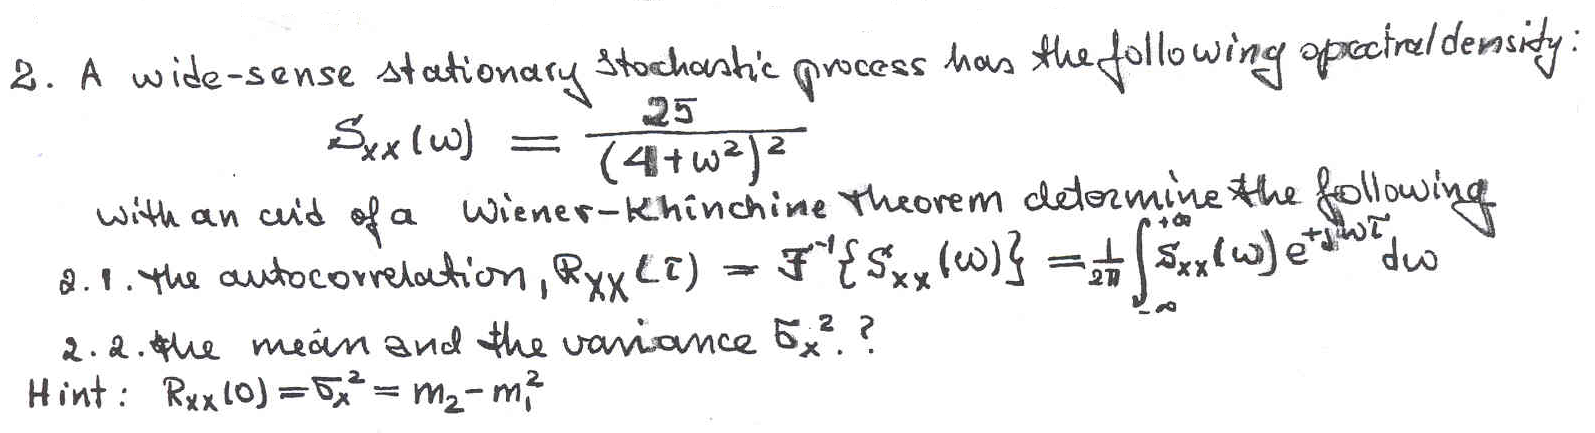 2. A wide-sense stationary stochastic process has the following spectral density:
S_xx(ω) = 25 / (4+ω²)²
with an aid of a Wiener-Khinchine theorem determine the following
2.1. the autocorrelation, R_XX(τ) = F⁻¹{S_xx(ω)} = 1/2π ∫_{-∞}^{+∞} S_xx(ω) e^{+jωτ} dω
2.2. the mean and the variance σ_x².?
Hint: R_XX(0) = σ_x² = m₂ - m₁²